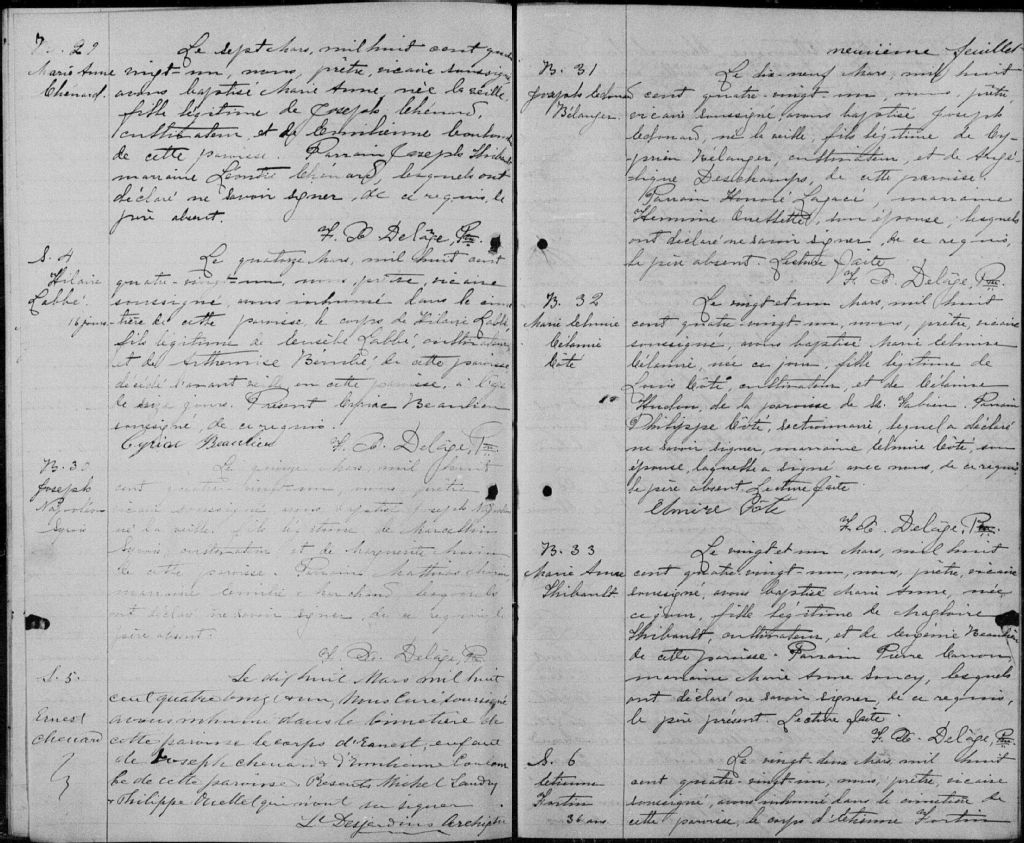 B. 29
Marie Anne
Chenard.
Le sept Mars, mil huit cent quatre
vingt-un, nous, prêtre, vicaire soussigné
avons baptisé Marie Anne, née la veille,
fille légitime de Joseph Chénard,
cultivateur, et de
de cette paroisse. Parrain Joseph Thibault
marraine Chénard, lesquels ont
déclaré ne savoir signer, de ce requis, le
père absent.
F. X. Delâge, Ptre.
S. 4
Hilaire
Labbé.
16 jours
Le quatorze Mars, mil huit cent
quatre-vingt-un, nous, prêtre, vicaire
soussigné, avons inhumé dans le cime
tière de cette paroisse, le corps de Hilaire Labbé,
fils légitime de Labbé, cultivateur,
et de Arthemise de cette paroisse
décédé l'avant veille en cette paroisse, à l'âge
de seize jours. Présent Cyriac Beaulieu
soussigné, de ce requis.
Cyriac Beaulieu F. X. Delâge, Ptre
B. 30
Joseph
Napoléon
Le quinze Mars, mil huit
cent quatre vingt-un nous prêtre
vicaire soussigné avons baptisé Joseph Napoléon
né la veille, fils légitime de
cultivateur et de Marguerite
de cette paroisse. Parrain Mathias
marraine lesquels
ont déclaré ne savoir signer, de ce requis le
père absent.
F. X. Delâge, Ptre
S. 5.
Ernest
Chenard
Le dix huit Mars mil huit
cent quatre vingt & un, Nous Curé soussigné
avons inhumé dans le Cimetière de
cette paroisse le corps d'Ernest, enfant
de Joseph Chenard & d'Emélienne Coulom
be de cette paroisse. Présents Michel Landry
& Philippe Ouellet qui n'ont su signer
Ls Desjardins Archiptre
neuvième feuillet
B. 31
Joseph Léonard
Bélanger.
Le dix-neuf Mars, mil huit
cent quatre-vingt-un, nous, prêtre,
vicaire soussigné avons baptisé Joseph
Léonard, né la veille, fils légitime de Cy-
prien Bélanger, cultivateur, et de Angé-
lique Deschamps, de cette paroisse.
Parrain Honoré Lagacé, marraine
Hermine Ouellette, son épouse, lesquels
ont déclaré ne savoir signer, de ce requis,
le père absent. Lecture faite
F. X. Delâge, Ptre.
B. 32
Marie Elmire
Célanire
Côté
Le vingt et un Mars, mil huit
cent quatre-vingt-un, nous, prêtre, vicaire
soussigné, avons baptisé Marie Elmire
Célanire, née ce jour, fille légitime de
Louis Côté, cultivateur, et de Célanire
Hudon, de la paroisse de St. Fabien. Parrain
Philippe Côté, sectionnaire, lequel a déclaré
ne savoir signer, marraine Elmire Côté, son
épouse, laquelle a signé avec nous, de ce requis
le père absent. Lecture faite.
Elmire Côté
F. X. Delâge, Ptre.
B. 33
Marie Anne
Thibault
Le vingt et un Mars, mil huit
cent quatre-vingt-un, nous, prêtre, vicaire
soussigné, avons baptisé Marie Anne, née
ce jour, fille légitime de Magloire
Thibault, cultivateur, et de Eugénie Beaulieu
de cette paroisse. Parrain Pierre
marraine Marie Anne Soucy, lesquels
ont déclaré ne savoir signer, de ce requis,
le père présent. Lecture faite.
F. X. Delâge, Ptre
S. 6
Etienne
Fortin
36 ans
Le vingt deux Mars, mil huit
cent quatre-vingt-un, nous, prêtre, vicaire
soussigné, avons inhumé dans le cimetière de
cette paroisse, le corps d'Etienne Fortin